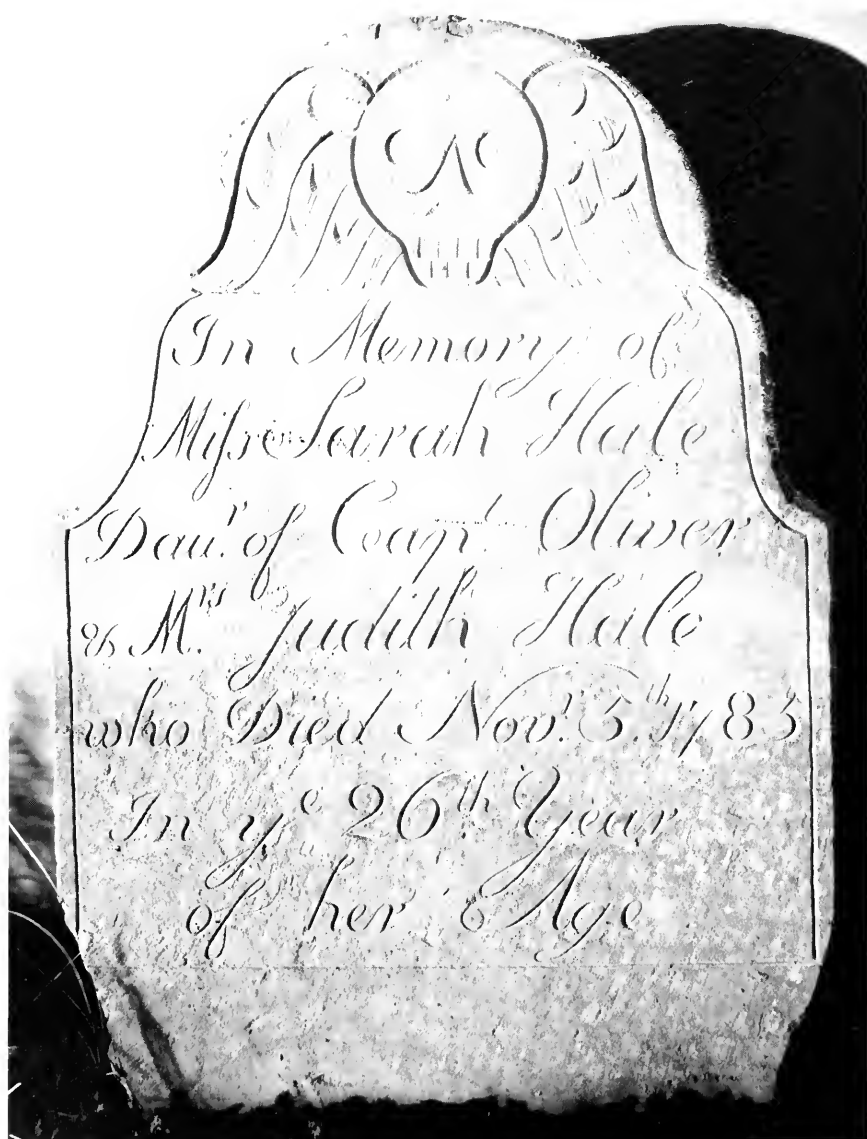 In Memory of
Miſs Sarah Hale
Dau.r of Cap.t Oliver
& M.rs Judith Hale
who Died Nov.r 5.th 1783
In y.e 26.th Year
of her Age